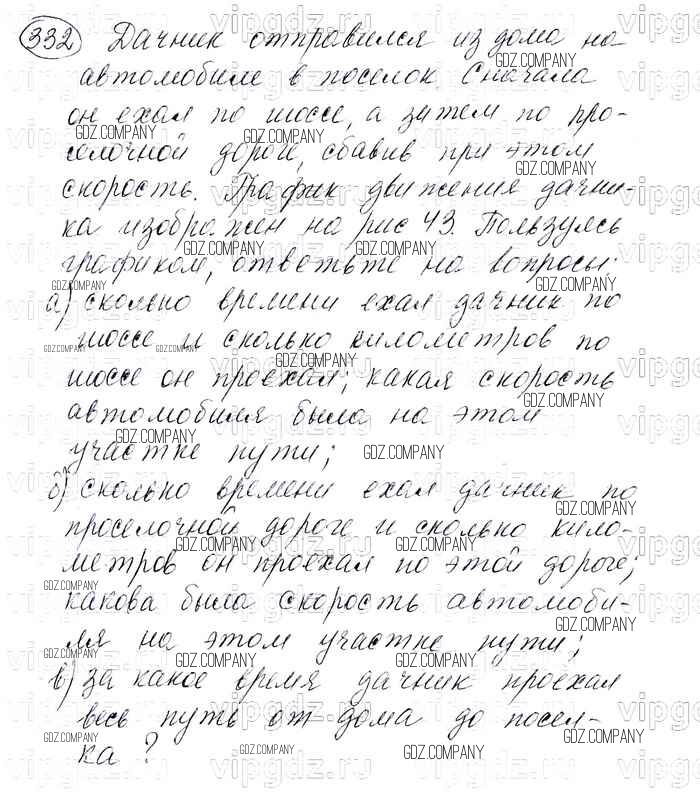 332 Дачник отправился из дома на
автомобиле в поселок. Сначала
он ехал по шоссе, а затем по про-
селочной дороге, сбавив при этом
скорость. График движения дачни-
ка изображен на рис 43. Пользуясь
графиком, ответьте на вопросы:
а) сколько времени ехал дачник по
шоссе и сколько километров по
шоссе он проехал; какая скорость
автомобиля была на этом
участке пути;
б) сколько времени ехал дачник по
проселочной дороге и сколько кило-
метров он проехал по этой дороге;
какова была скорость автомоби-
ля на этом участке пути;
в) за какое время дачник проехал
весь путь от дома до посел-
ка?